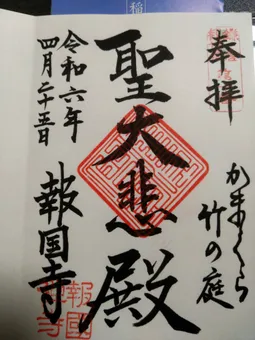 奉拝
かまくら
竹の庭
聖大悲殿
令和六年
四月二十五日
報国寺
報國
寺
稲